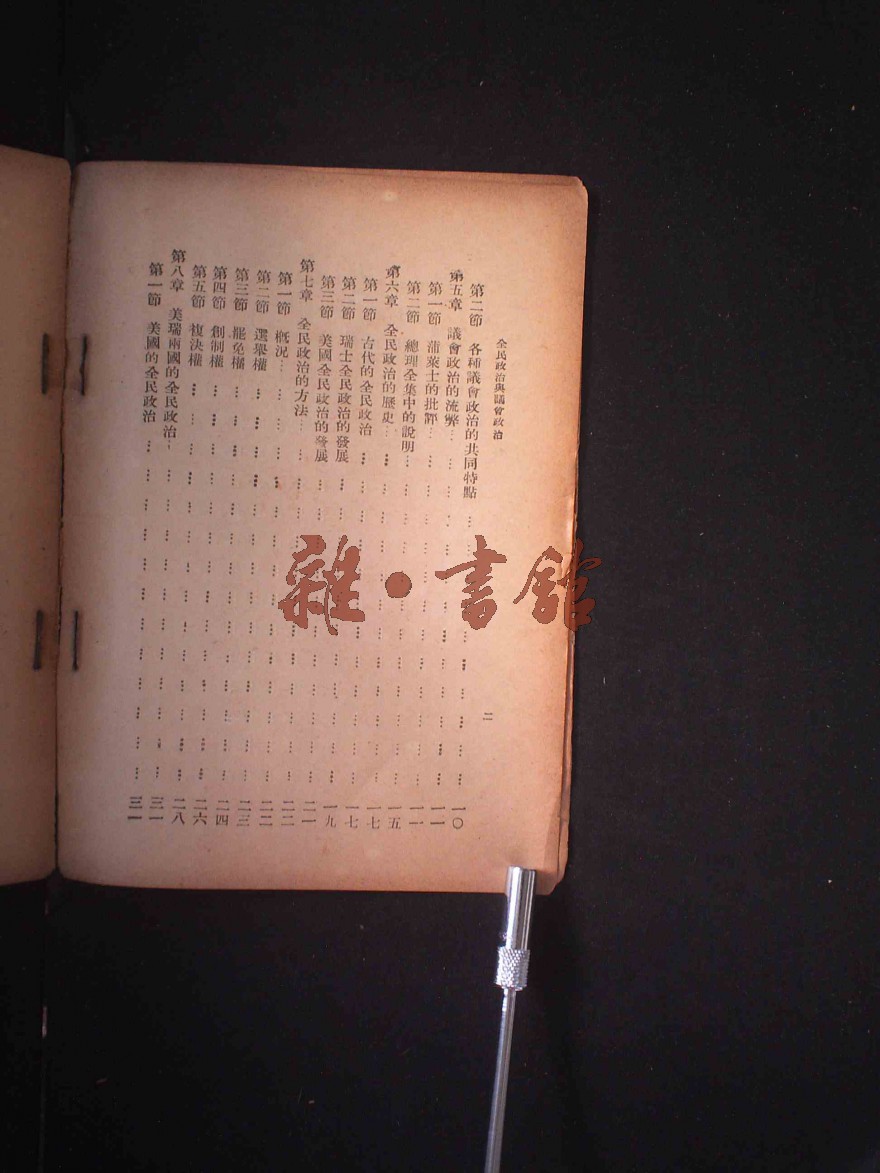 全民政治與議會政治 二
第二節 各種議會政治的共同特點 …… 一〇
第五章 議會政治的流弊 …… 一一
第一節 蒲萊士的批評 …… 一一
第二節 總理全集中的說明 …… 一五
第六章 全民政治的歷史 …… 一七
第一節 古代的全民政治 …… 一七
第二節 瑞士全民政治的發展 …… 一九
第三節 美國全民政治的發展 …… 二一
第七章 全民政治的方法 …… 二二
第一節 概況 …… 二二
第二節 選舉權 …… 二三
第三節 罷免權 …… 二四
第四節 創制權 …… 二六
第五節 複決權 …… 二八
第八章 美瑞兩國的全民政治 …… 三一
第一節 美國的全民政治 …… 三一
雜·書館